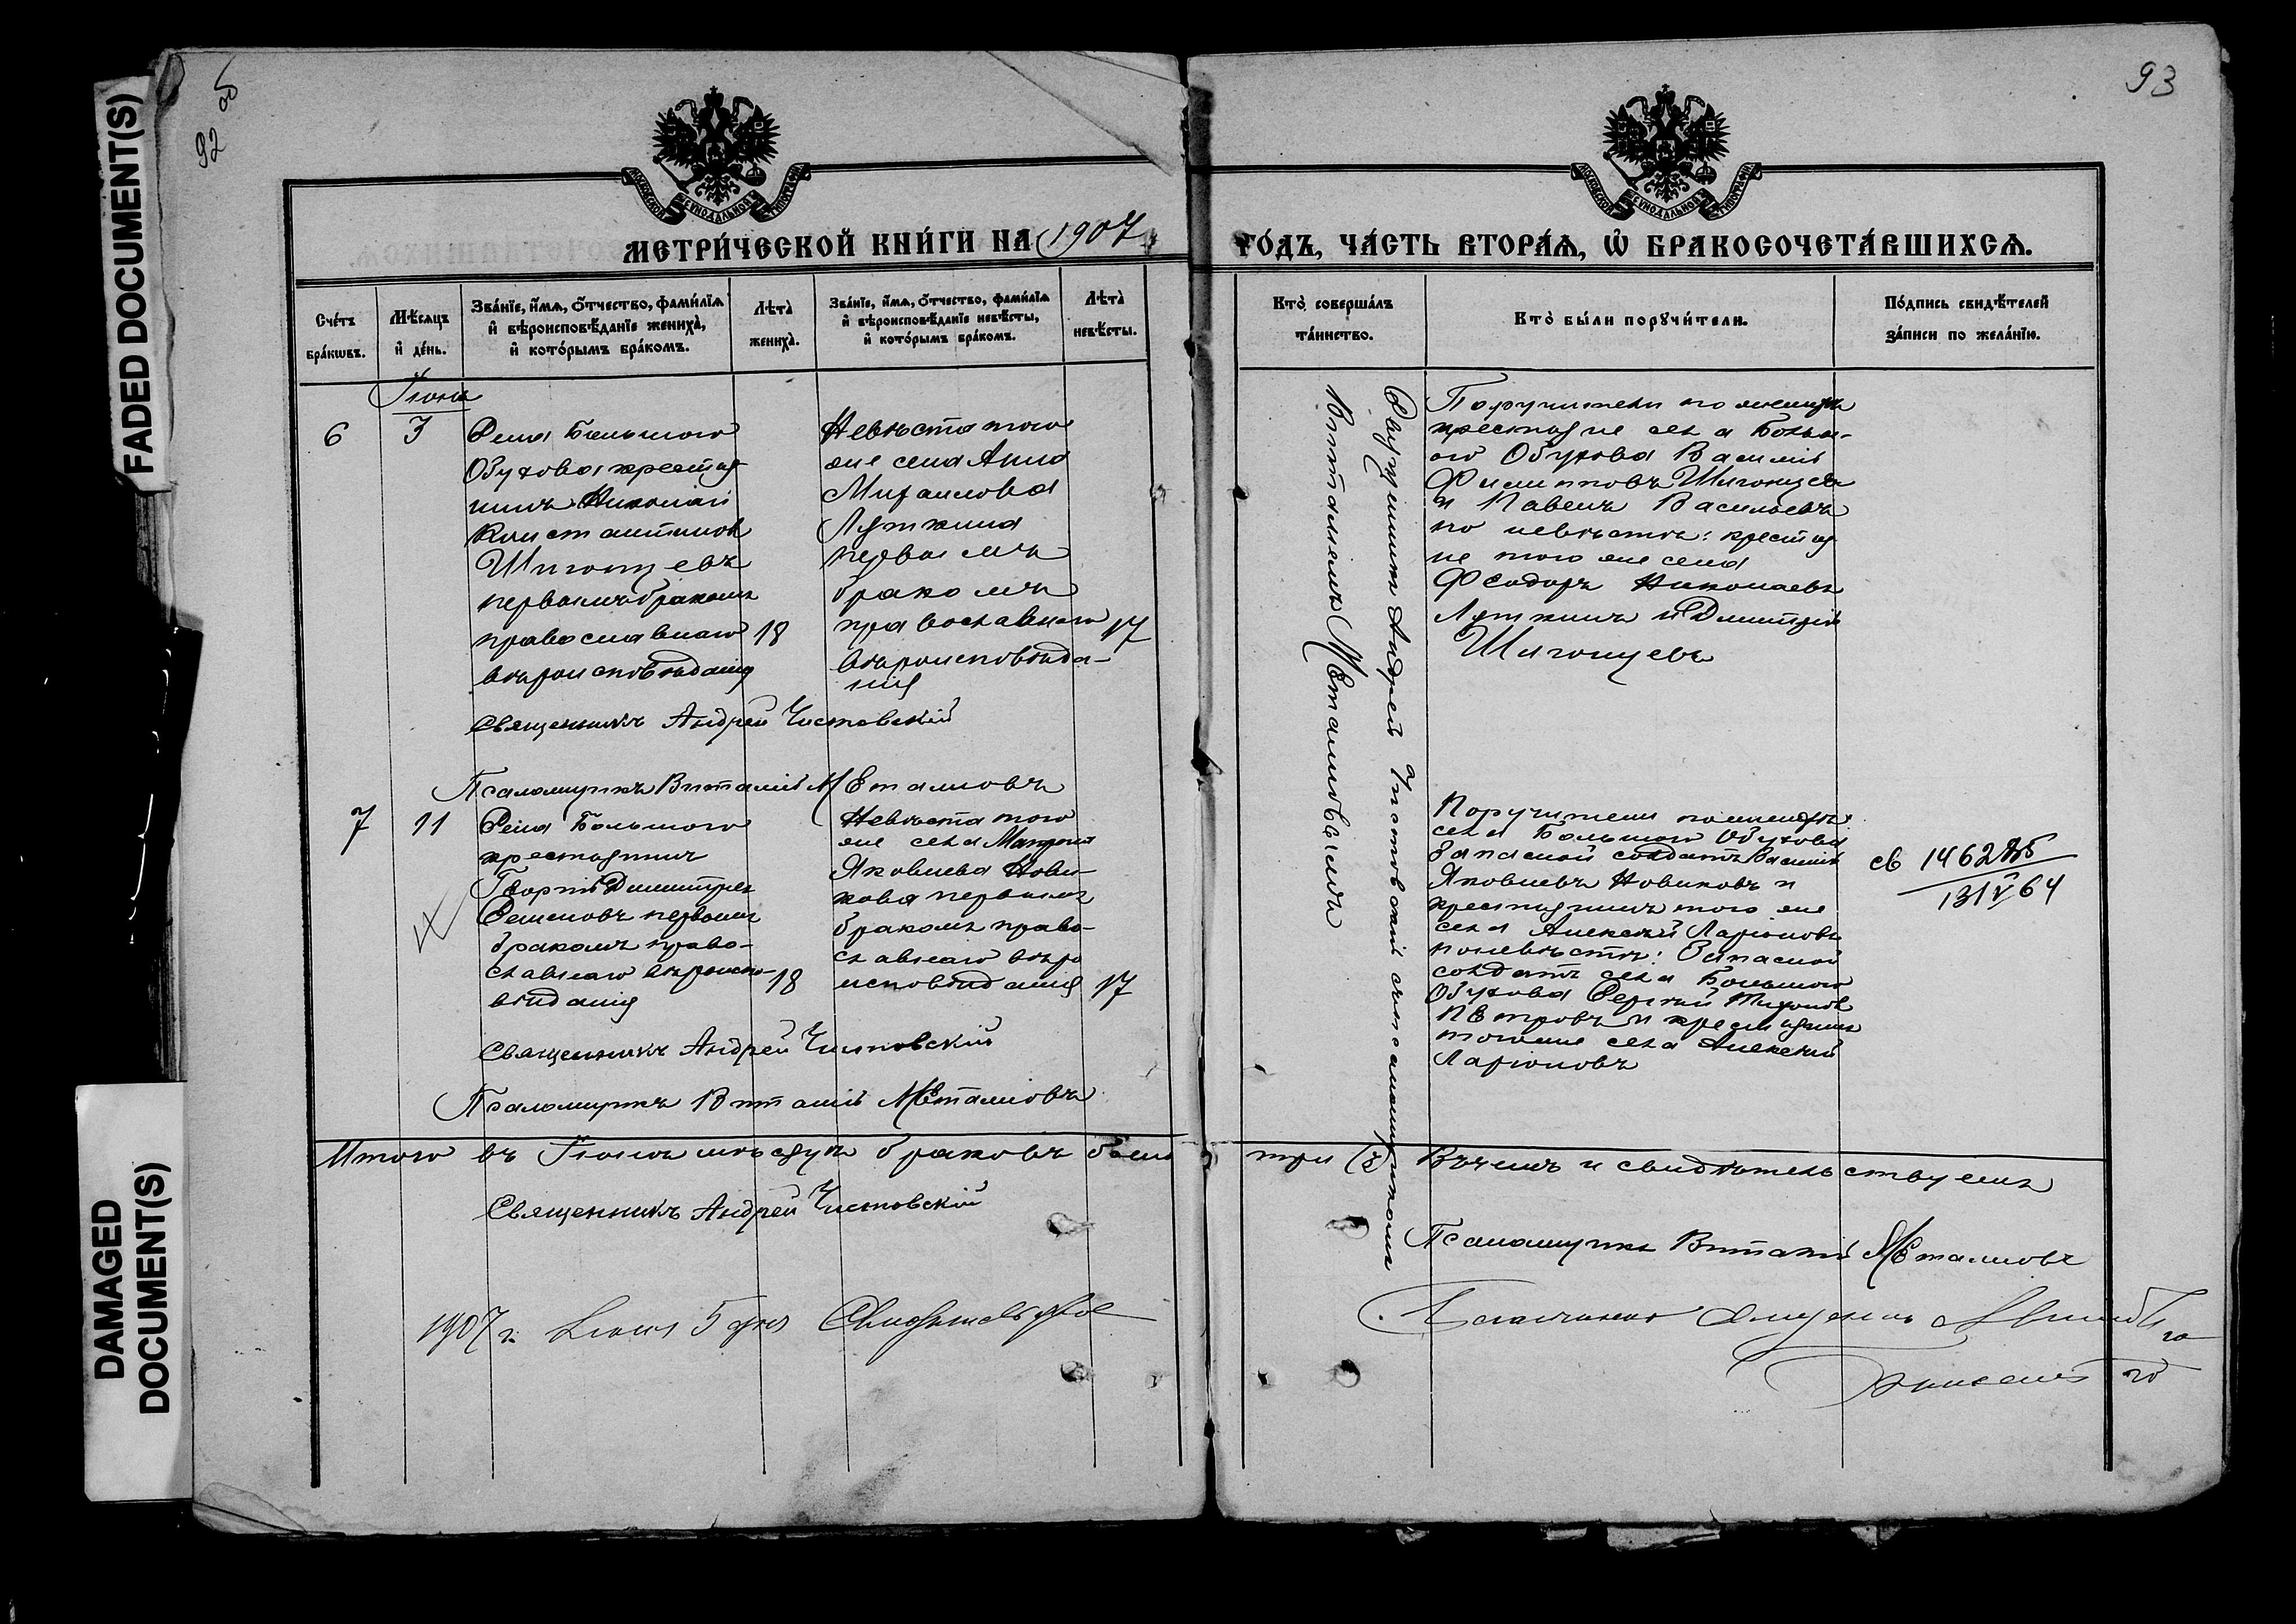 FADED DOCUMENT(S)
DAMAGED
DOCUMENT(S)
92 об
93
МОСКОВСКОЙ СѴНОДАЛЬНОЙ ТИПОГРАФІИ
МОСКОВСКОЙ СѴНОДАЛЬНОЙ ТИПОГРАФІИ
МЕТРИ́ЧЕСКОЙ КНИ́ГИ НА 1907
ГО́ДЪ, ЧА́СТЬ ВТОРА́Ѧ, Ѡ҆ БРАКОСОЧЕТА́ВШИХСѦ.
Сче́тъ бра́кѡвъ.
Мѣ́сѧцъ и҆ де́нь.
Зва́нїе, и҆́мѧ, ѻ҆́тчество, фами́лїѧ и҆ вѣроисповѣ́данїе жениха̀, и҆ кото́рымъ бра́комъ.
Лѣта̀ жениха̀.
Зва́нїе, и҆́мѧ, ѻ҆́тчество, фами́лїѧ и҆ вѣроисповѣ́данїе невѣ́сты, и҆ кото́рымъ бра́комъ.
Лѣта̀ невѣ́сты.
Кто̀ соверша́лъ та́инство.
Кто̀ бы́ли порꙋчи́тели.
По́дпись свидѣ́телей за́писи по жела́нїю.
Іюнь
6
3
Села Большого
Обухова крестья
нинъ Николай
Константинов
Шигонцевъ
первымъ бракомъ
православнаго
вѣроисповѣданія
18
Невѣста того
же села Анна
Михаилова
Луткина
первымъ
бракомъ
православнаго
вѣроисповѣда-
нія
17
Священникъ Андрей Чистовскій
Псаломщикъ Виталій Металловъ
Священникъ Андрей Чистовскій съ псаломщикомъ
Виталіемъ Металловымъ
Поручители по женихѣ
крестьяне села Больш-
ого Обухова Василій
Филипповъ Шигонцевъ
и Павелъ Васильевъ
по невѣстѣ: крестья
не того же села
Феодоръ Николаевъ
Луткинъ и Димитрій
Шигонцевъ
7
11
Села Большого
крестьянинъ
Георгій Димитріев
Семеновъ первымъ
бракомъ право-
славнаго вѣроиспо-
вѣданія
18
Невѣста того
же села Матрона
Яковлева Нови-
кова первымъ
бракомъ право-
славнаго вѣро
исповѣданія
17
Поручители по женихѣ
села Большого Обухова
Запасной солдатъ Василій
Яковлевъ Новиковъ и
крестьянинъ того же
села Алексѣй Ларіоновъ
по невѣстѣ: Запасной
солдатъ села Большого
Обухова Сергѣй Тихонов
Петровъ и крестьянинъ
того же села Алексѣй
Ларіоновъ
св 146285
131 V 64
Священникъ Андрей Чистовскій
Псаломщикъ Виталій Металловъ
Итого въ Іюнѣ мѣсяцѣ браковъ было три (3) Въ чемъ и свидѣтельствуемъ
Священникъ Андрей Чистовскій
Псаломщикъ Виталій Металловъ
1907 г. Іюля 5 дня